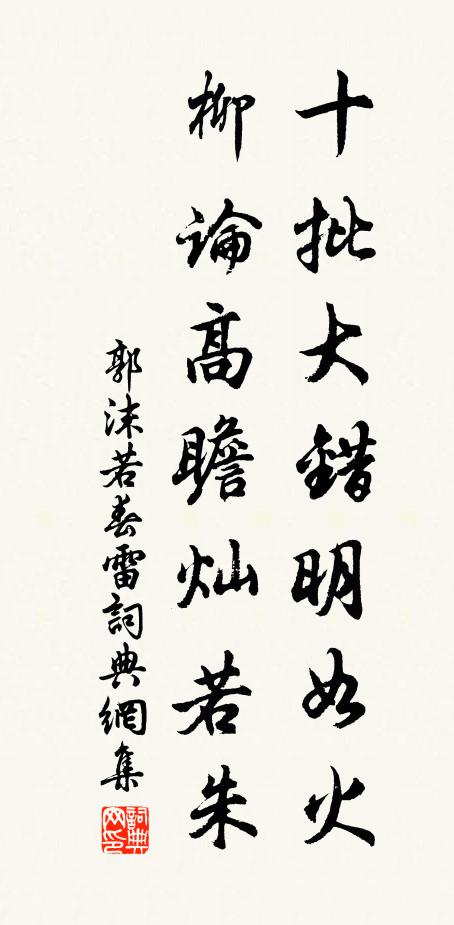 十批大錯明如火
柳論高瞻灿若朱
郭沫若春雷詞典網集
詞典
网印